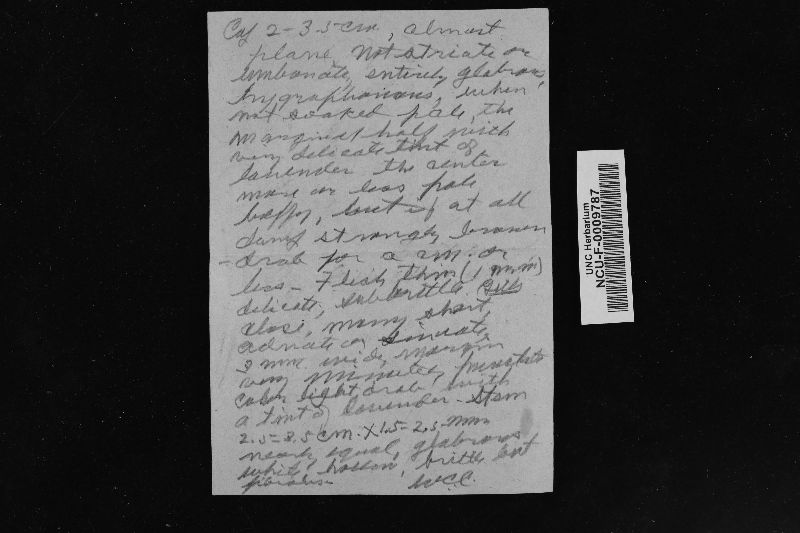 Cap 2-3.5 cm, almost
plane. Not striate or
umbonate, entirely glabrous,
hygrophanous, when
not soaked pale, the
marginal half with
very delicate tint of
lavender the center
more or less pale
buffy, but if at all
damp strongly brown
- drab for a cm. or
less - Flesh thin (1 mm)
delicate, subbrittle Gills
close, many short,
adnate or sinuate,
3 mm. wide, margin
very minutely
color light drab with
a tint of lavender - Stem
2.5-3.5 cm. X 1.5-2.5 mm
nearly equal, glabrous
white, hollow, brittle but
W.C.C.
UNC Herbarium
NCU-F-0009787